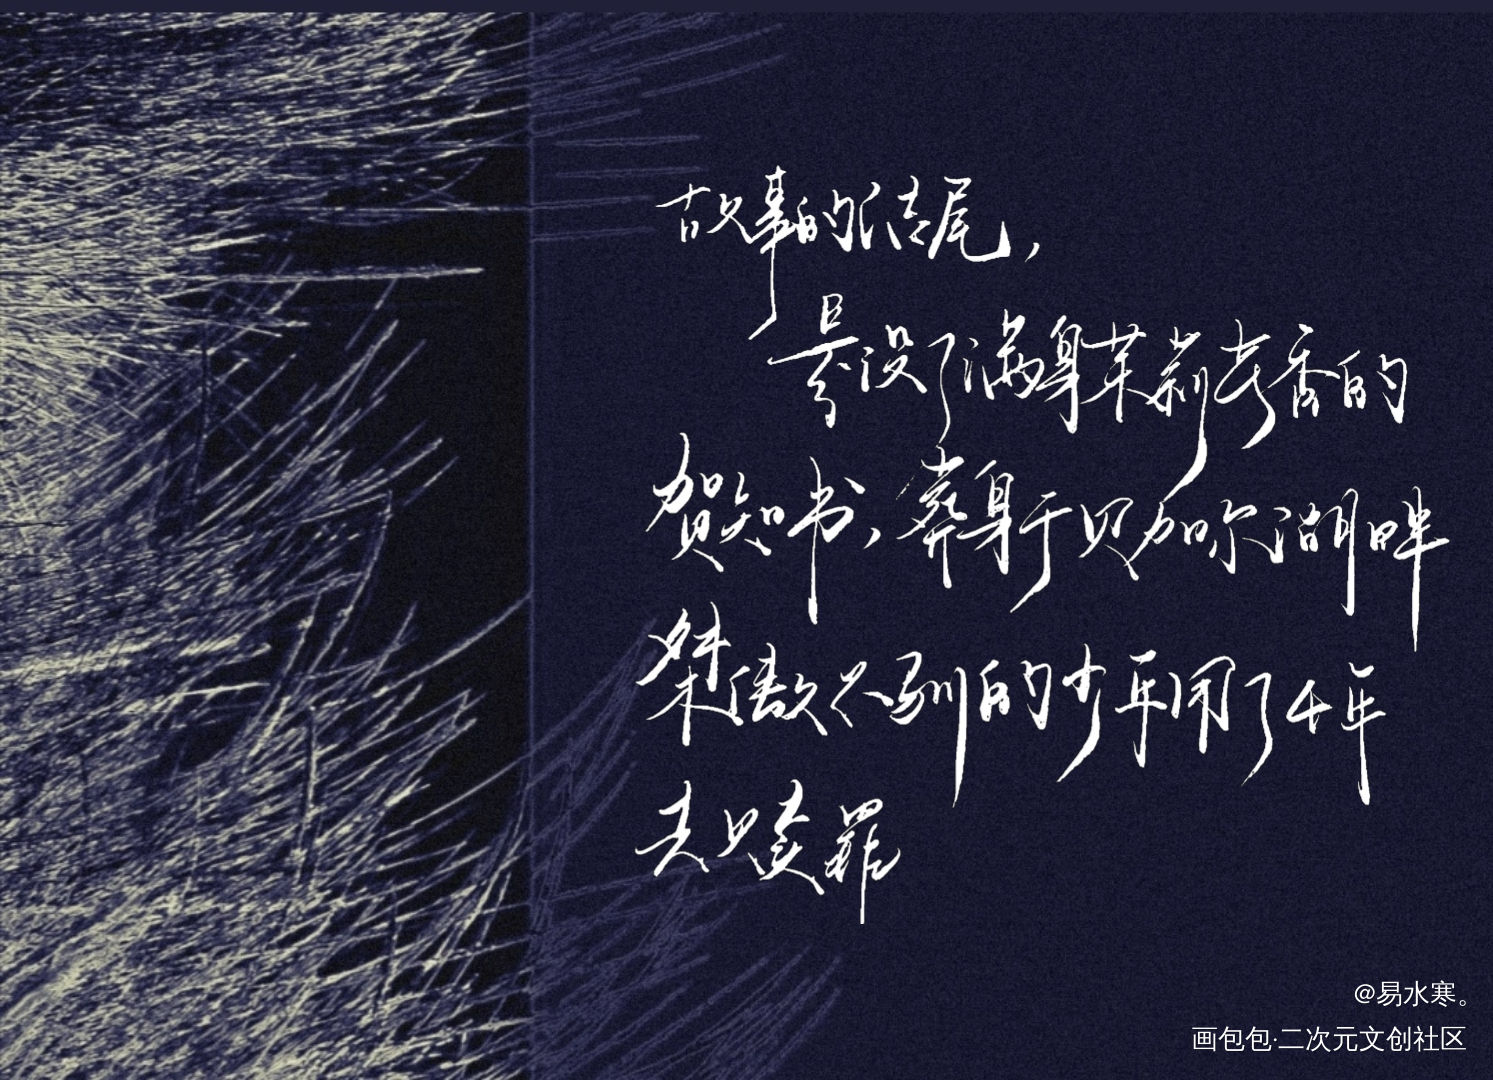 故事的结尾，
最没了满身茉莉芳香的
贺知书，葬身于贝加尔湖畔
桀傲不驯的少年用了4年
去赎罪
@易水寒。
画包包·二次元文创社区